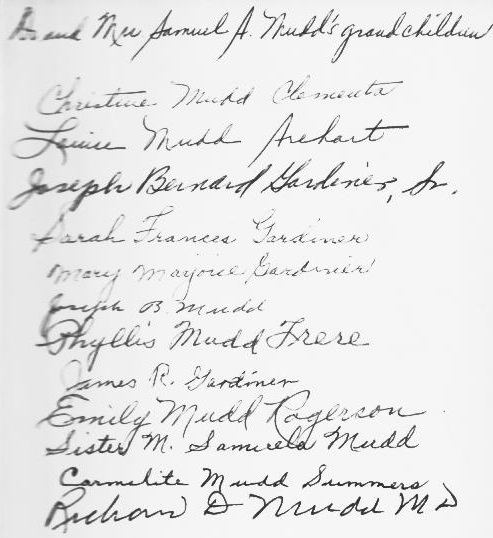 Dr and Mrs Samuel A. Mudd's grandchildren
Christine Mudd Clements
Louise Mudd Arehart
Joseph Bernard Gardiner, Sr.
Sarah Frances Gardiner
Mary Marjorie Gardiner
Joseph B. Mudd
Phyllis Mudd Frere
James R. Gardiner
Emily Mudd Rogerson
Sister M. Samuela Mudd
Carmelite Mudd Summers
Richard D Mudd MD